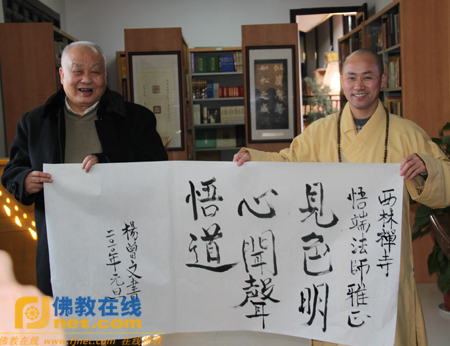 西林禪寺
悟端法師雅正
見色明
心聞聲
悟道
楊曾文書
二〇一〇年元旦
佛教在线
fjnet.com
佛教在线 www.fjnet.com